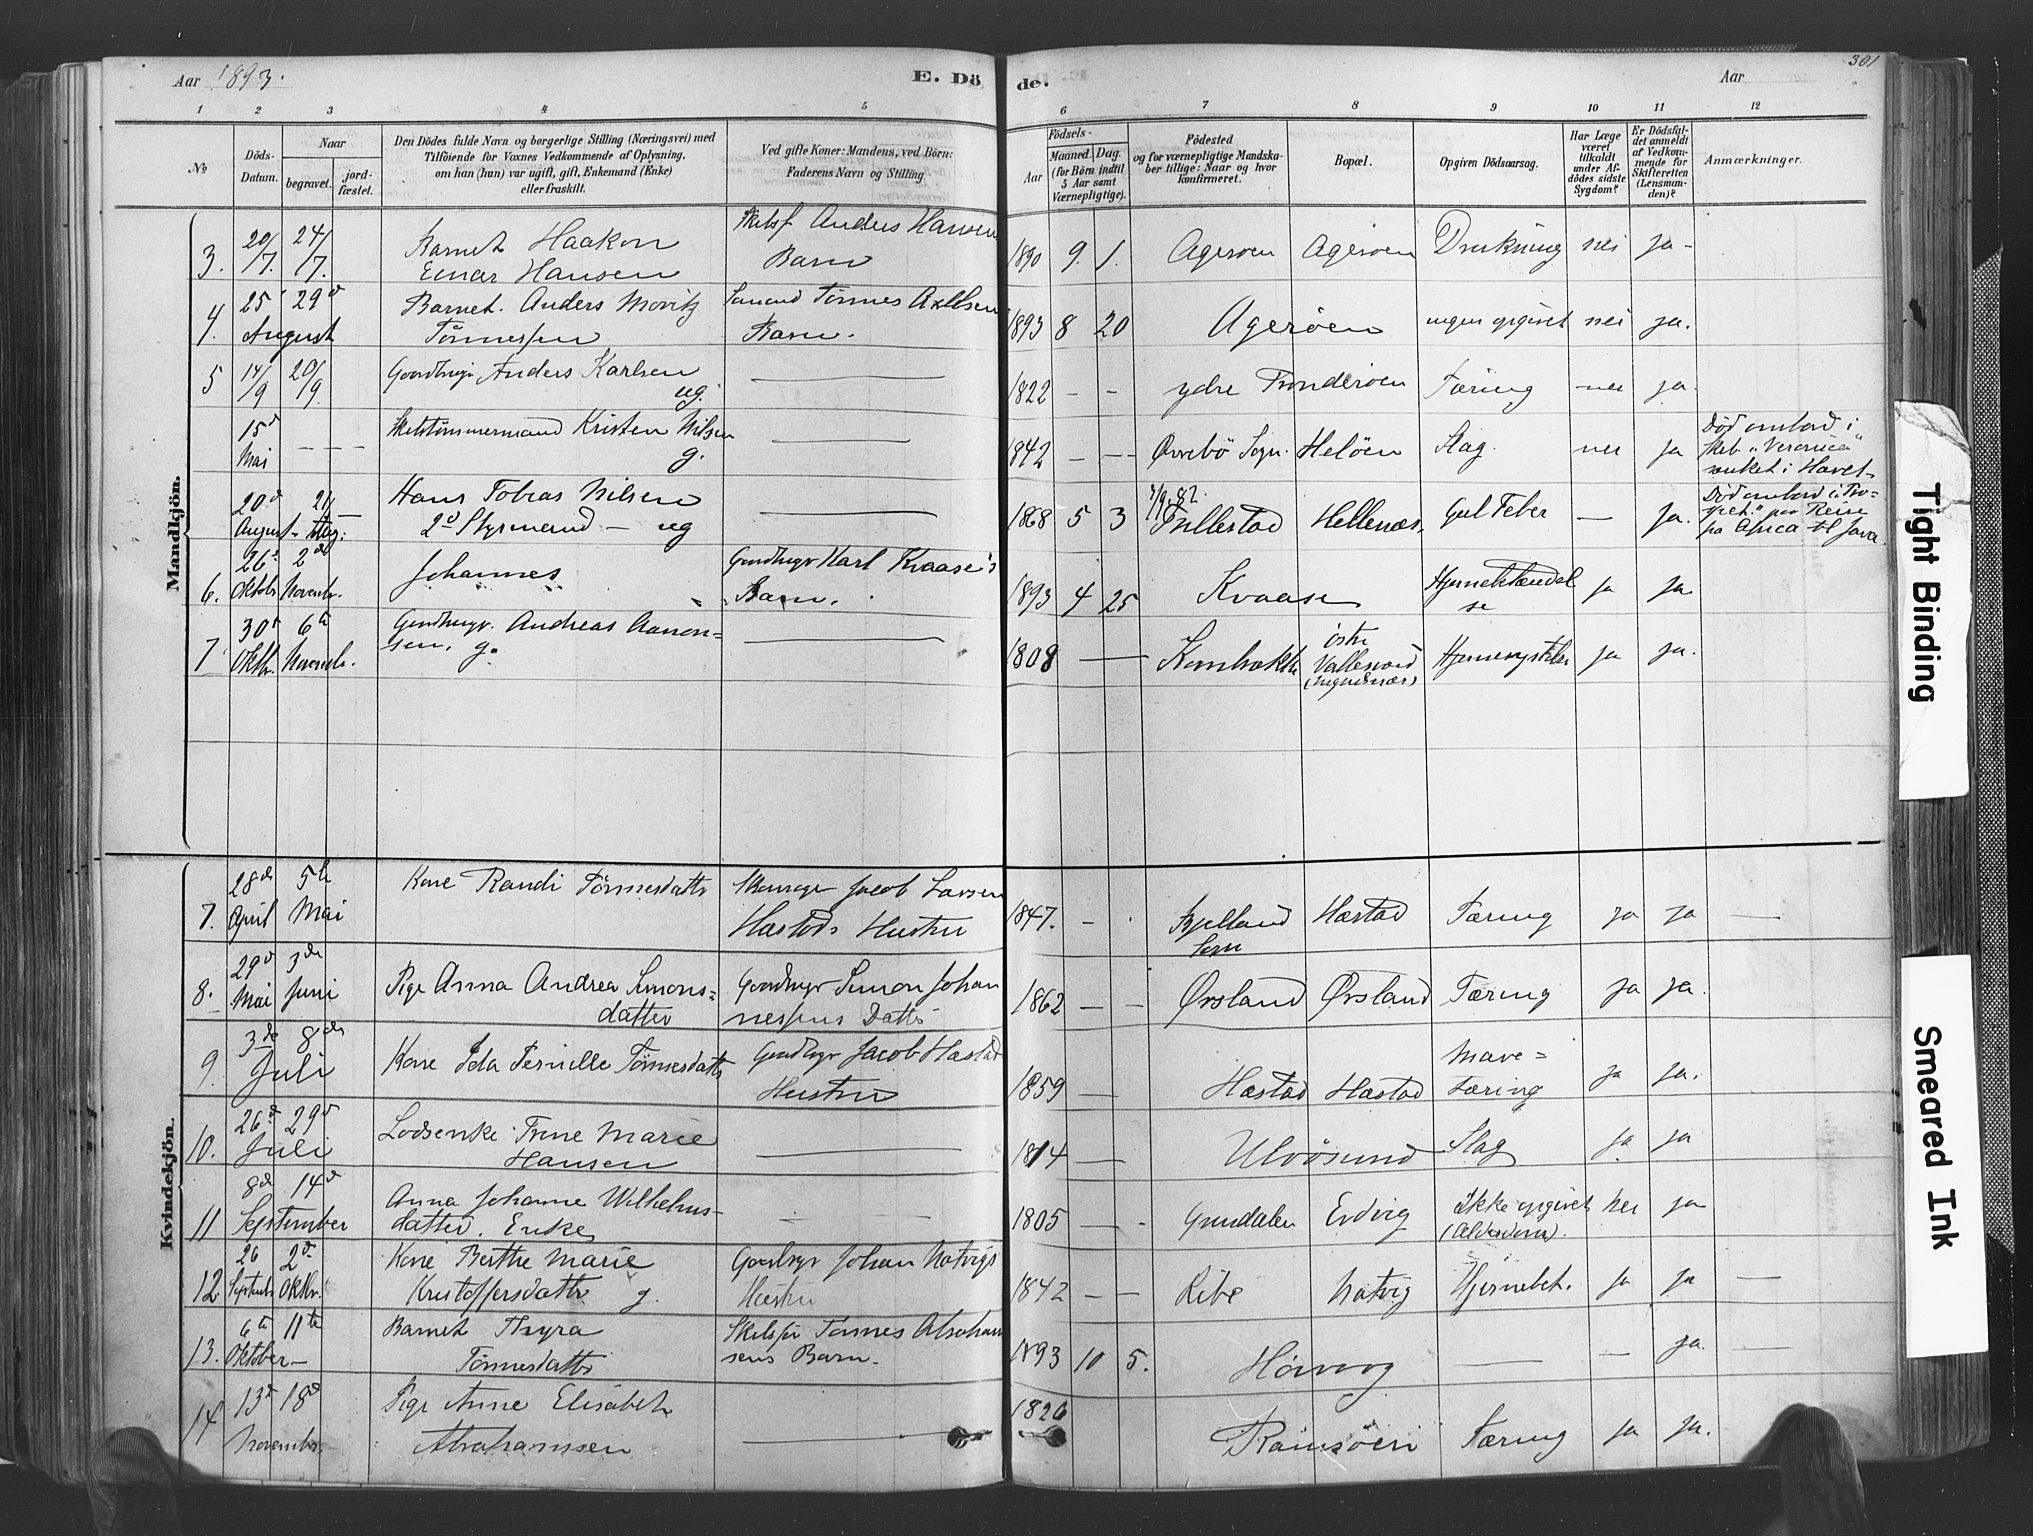 Aar 1893.
E. Dö
de.
Aar
301
1 2 3 4 5 6 7 8 9 10 11 12
No
Döds-
Datum.
Naar
begravet.
jord-
fæstet.
Den Dödes fulde Navn og borgerlige Stilling (Næringsvei) med
Tilföiende for Voxnes Vedkommende af Oplysning,
om han (hun) var ugift, gift, Enkemand (Enke)
eller fraskilt.
Ved gifte Koner: Mandens, ved Börn:
Faderens Navn og Stilling.
Födsels-
Aar
Maaned. Dag.
(for Börn indtil
5 Aar samt
Værnepligtige).
Födested
og for værnepligtige Mandska-
ber tillige: Naar og hvor
konfirmeret.
Bopæl.
Opgiven Dödsaarsag.
Har Læge
været
tilkaldt
under Af-
dödes sidste
Sygdom?
Er Dödsfal-
det anmeldt
af Vedkom-
mende for
Skifteretten
(Lensman-
den)?
Anmærkninger.
Mandkjön.
3. 20/7. 24/7. Barnet Haakon
Einar Hansen
Anders Hansen
Barn
1890 9. 1. Agerøen Agerøen Drukning nei ja-
4. 25 29d
August
Barnet. Anders Moritz
Tönnessen
Tönnes Axelsen
Barn.
1893 8 20 Agerøen ingen opgivet nei ja.
5 14/9 20/9. Anders Karlsen
ug.
1822 - - ydre Tæring nei ja.
15d
Mai
Skibstömmermand Kristen Nilsen
g.
1842 - - Øvrebö Sogn. Heløen Slag. nei ja
Död ombord i
Skib "Veronica"
sænket i Havet
20d
August
21/ Aug.
Hans Tobias Nilsen
2d Styrmand - ug
1868 5 3 Hellenæs. Gul Feber — ja.
Död ombord i "Pro-
pet." paa Reise
fra Africa til Java.
6. 26d 2den
Oktobr Novembr.
Johannes
Gaardbrugr Karl Kvaase's
Barn.
1893 4 25 Kvaase Hjernebetændel
se ja ja.
7 30d 6te
Oktbr. Novembr.
Gaardbrugr. Andreas Aanon=
sen. g.
1808 östre
Vallesværd ja ja.
Kvindekjön.
7. 28de 5te
April Mai
Kone Randi Tönnesdattr
Jacob Larsen
Hæstads Hustru
1847. - Bjelland
Sogn Hæstad Tæring ja ja —
8. 29d 3de
Mai Juni
Pige Anna Andrea Simons=
datter
Gaardbrugr Simon Johan
nessens Dattr
1862 - - Ørsland Ørsland Tæring ja ja.
9. 3de 8de
Juli
Kone Ida Pernille Tönnesdattr
Gaardbrugr Jacob Hæstad
Hustru
1859 — Hæstad Hæstad Mave=
tæring ja ja.
10. 26d 29d
Juli
Lodsenke Trine Marie
Hansen
1814 — Ulvösund Slag ja ja
11 8de 14d
September
Anna Johanne Wilhelms-
datter. Enke
1805 — Eidvig Ikke opgivet
(Alderdom). nei ja
12. 26 2d
Septembr Oktbr.
Kone Berthe Marie
Kristoffersdattr g.
Gaardbrgr Johan Natvigs
Hustru
1842 - - Ribe Natvig Hjernebet. ja ja —
13. 6te 11te
Oktober
Barnet Thyra
Tönnesdattr
Tönnes Abraham
sens Barn.
1893 10 5. — — ja. —
14 13d 18d
Novembr.
Pige Anne Elisabeth
Abrahamsen
1826 Ramsöen Tæring ja ja.
Tight Binding
Smeared Ink